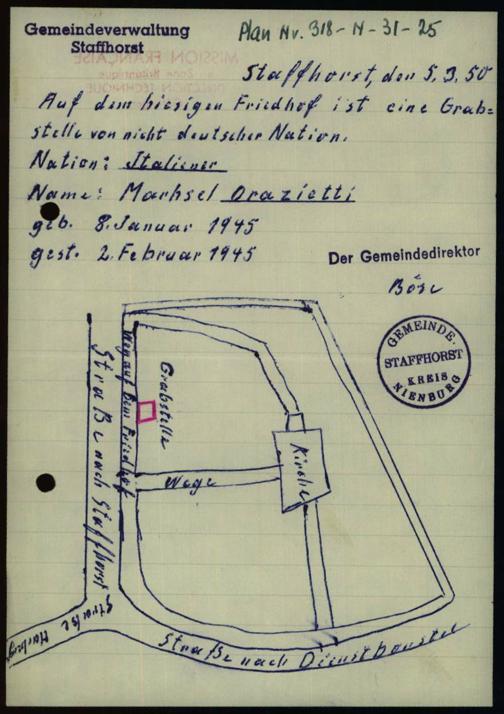 Gemeindeverwaltung
Staffhorst
Plan Nr. 318-N-31-25
MISSION FRANÇAISE
Staffhorst, den 5.3.50
Auf dem hiesigen Friedhof ist eine Grab=
stelle von nicht deutscher Nation.
Nation: Italiener
Name: Marhsel Orazietti
geb. 8. Januar 1945
gest. 2. Februar 1945
Der Gemeindedirektor
Böse
GEMEINDE.
STAFFHORST
KREIS
NIENBURG
Straße nach Staffhorst
Weg auf dem Friedhof
Grabstelle
Kirche
Wege
Straße
Straße nach Dienstborstel